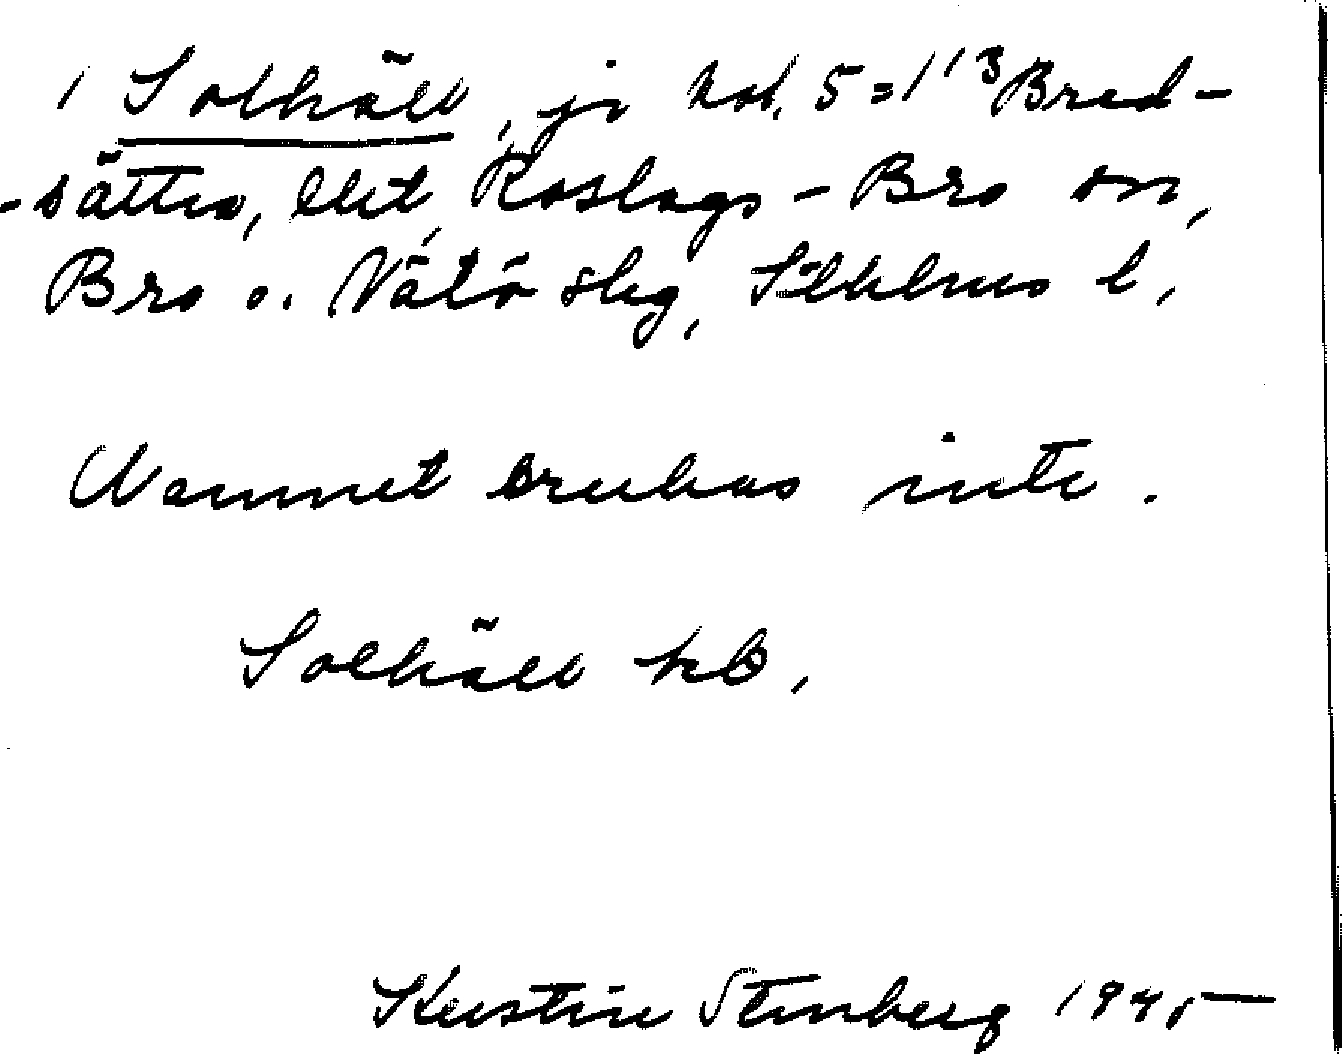 1 Solhäll, js kat. 5=1¹³ Bred-
-sätra, Ekt, Roslags-Bro sn,
Bro o. Vätö skg, Sthlms l,
Namnet brukas inte.
Solhäll kb,
Kerstin Stenberg 1945